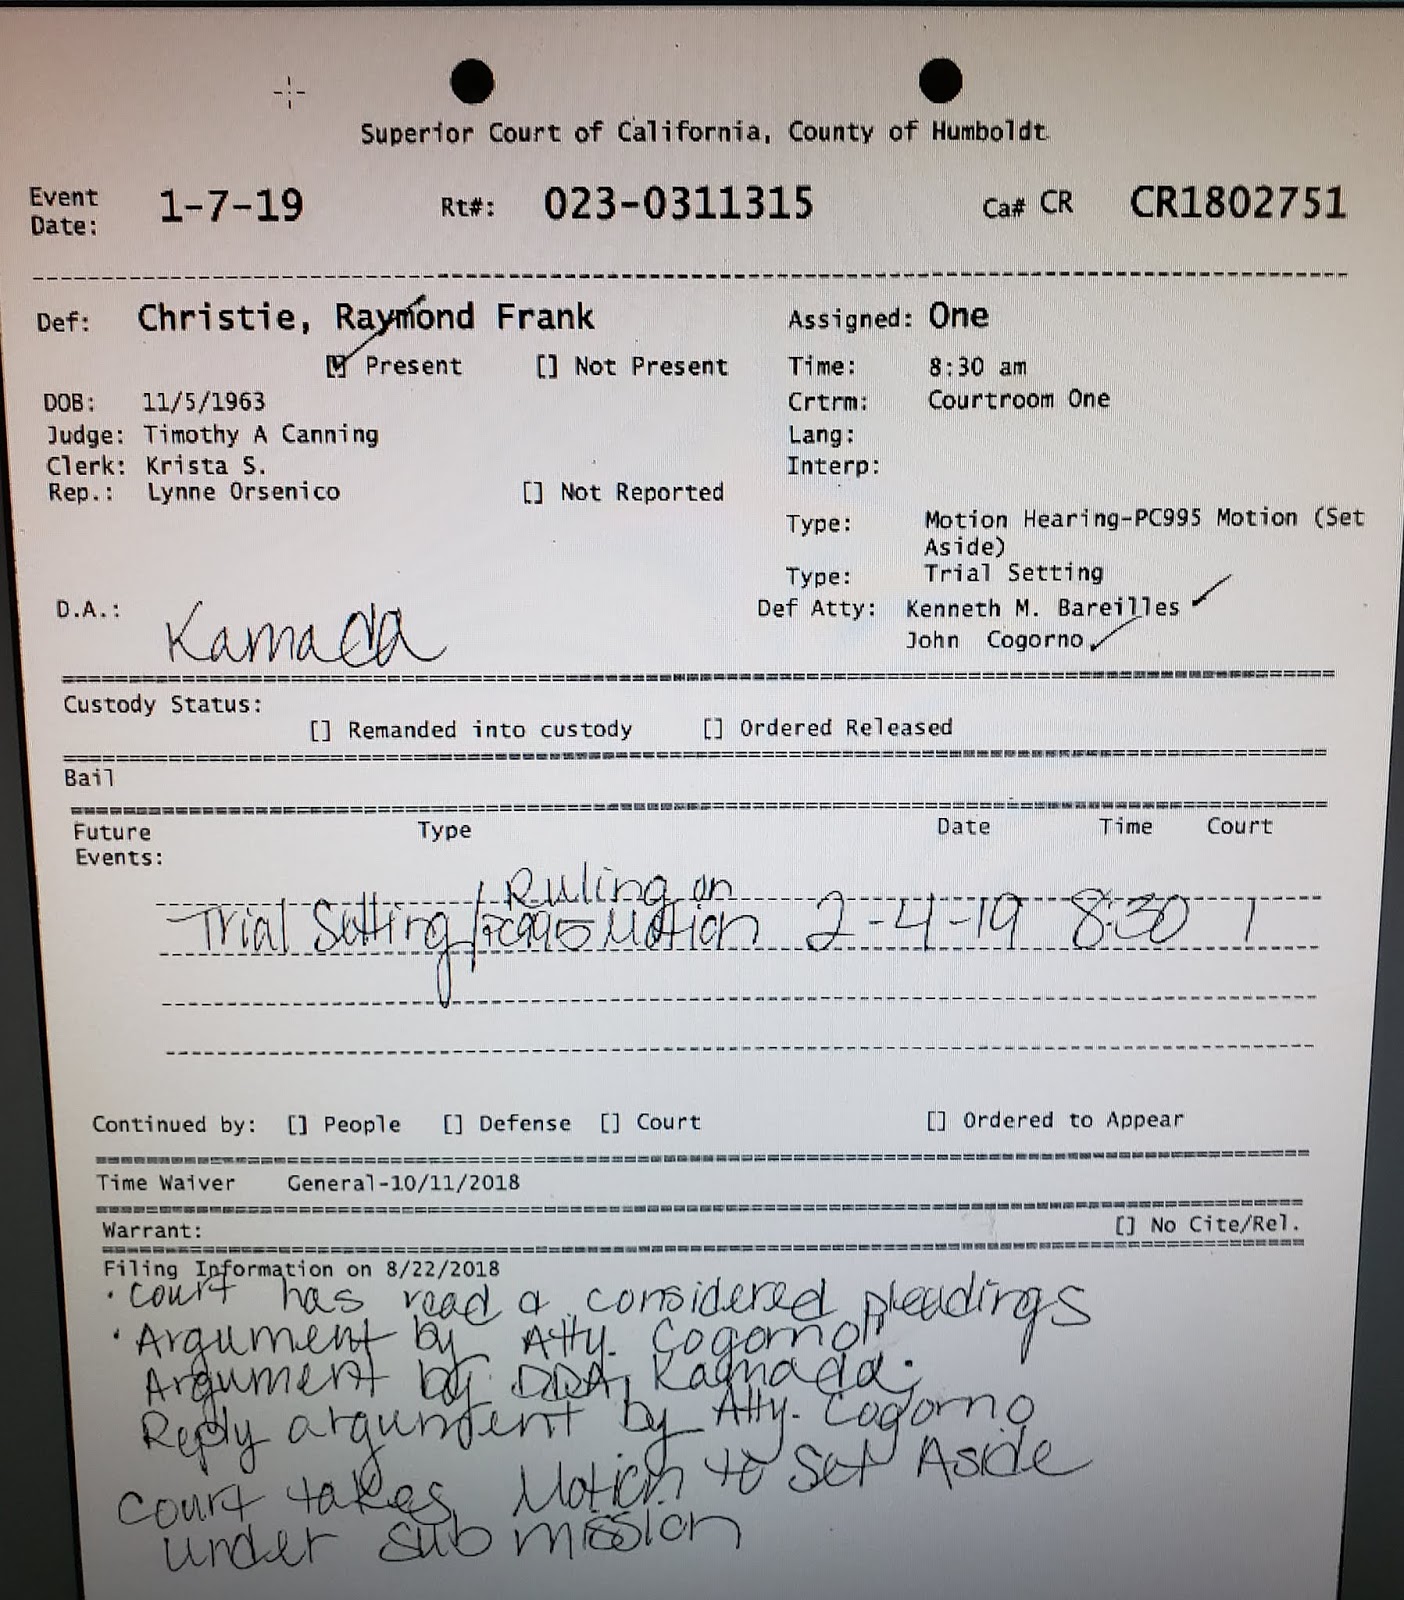 Superior Court of California, County of Humboldt
Event Date: 1-7-19 Rt#: 023-0311315 Ca# CR CR1802751
Def: Christie, Raymond Frank Assigned: One
[✓] Present [] Not Present Time: 8:30 am
DOB: 11/5/1963 Crtrm: Courtroom One
Judge: Timothy A Canning Lang:
Clerk: Krista S. Interp:
Rep.: Lynne Orsenico [] Not Reported
Type: Motion Hearing-PC995 Motion (Set
Aside)
Type: Trial Setting
D.A.: Kamada Def Atty: Kenneth M. Bareilles ✓
John Cogorno ✓
Custody Status:
[] Remanded into custody [] Ordered Released
Bail
Future Type Date Time Court
Events:
Ruling on
Trial Setting/PC995 Motion 2-4-19 8:30 1
Continued by: [] People [] Defense [] Court [] Ordered to Appear
Time Waiver General-10/11/2018
Warrant: [] No Cite/Rel.
Filing Information on 8/22/2018
· Court has read & considered pleadings
· Argument by Atty. Cogorno
Argument by DDA, Kamada.
Reply argument by Atty. Cogorno
Court takes Motion to Set Aside
under submission